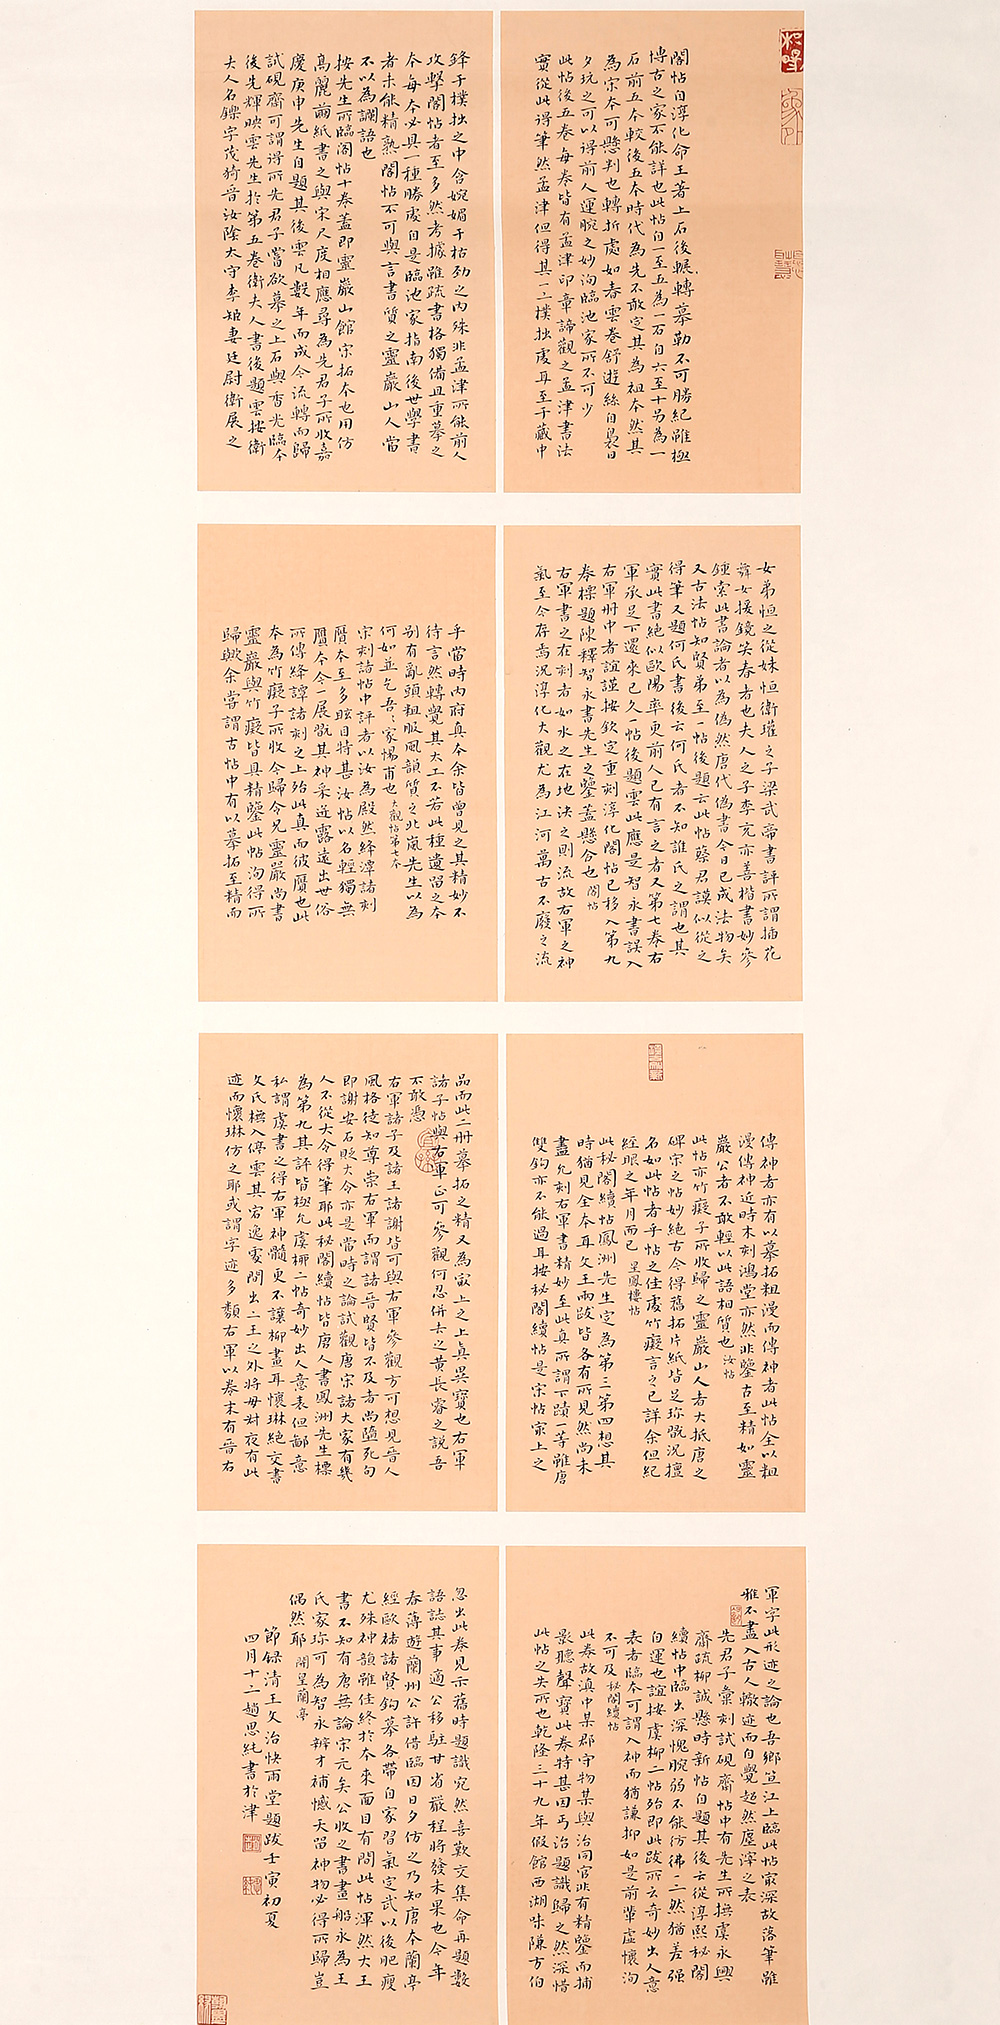 閣帖自淳化命王著上石後輾轉摹勒不可勝紀雖極
博古之家不能詳也此帖自一至五為一石自六至十另為一
石前五本較後五本時代為先不敢定其為祖本然其
為宋本可懸判也轉折處如春雲卷舒遊絲自裊日
夕玩之可以得前人運腕之妙洵臨池家所不可少
此帖後五卷每卷皆有孟津印章諦觀之孟津書法
實從此得筆然孟津但得其一二樸拙處耳至于藏中
鋒于樸拙之中含婉媚于枯勁之內殊非孟津所能前人
攻擊閣帖者至多然考據雖疏書格獨備且重摹之
本每本必具一種勝處自是臨池家指南後世學書
者未能精熟閣帖不可與言書質之靈巖山人當
不以為讕語也
按先生所臨閣帖十卷蓋即靈巖山館宋拓本也用仿
高麗繭紙書之與宋尺度相應尋為先君子所收嘉
慶庚申先生自題其後雲凡數年而成今流轉而歸
試硯齋可謂得所先君子嘗欲摹之上石與香光臨本
後先輝映雲先生於第五卷衛夫人書後題雲按衛
夫人名鑠字茂猗晉汝陰太守李矩妻廷尉衛展之
女弟恒之從妹恒衛瓘之子梁武帝書評所謂插花
舞女援鏡笑春者也夫人之子李充亦善楷書妙參
鍾索此書論者以為偽然唐代偽書今日已成法物矣
又古法帖知賢弟至一帖後題云此帖蔡君謨似從之
得筆又題何氏書後云何氏者不知誰氏之謂也其
實此書絕似歐陽率更前人已有言之者又第七卷右
軍承足下還來已久一帖後題雲此應是智永書誤入
右軍冊中者誼謹按欽定重刻淳化閣帖已移入第九
卷標題陳釋智永書先生之鑒蓋懸合也 閣帖
右軍書之在刻者如水之在地決之則流故右軍之神
氣至今存焉況淳化大觀尤為江河萬古不廢之流
乎當時內府真本余皆曾見之其精妙不
待言然轉覺其太工不若此種遺留之本
別有亂頭粗服風韻質之北嵐先生以為
何如並乞吾家惕甫也 大觀帖第七本
宋刻諸帖中評者以汝為殿然絳潭諸刻
贋本至多眩目特甚汝帖以名輕獨無
贋本今一展翫其神采迸露遠出世俗
所傳絳譚諸刻之上殆此真而彼贋也此
本為竹癡子所收今歸令兄靈巖尚書
靈巖與竹癡皆具精鑒此帖洵得所
歸歟余嘗謂古帖中有以摹拓至精而
傳神者亦有以摹拓粗漫而傳神者此帖全以粗
漫傳神近時木刻鴻堂亦然非鑒古至精如靈
巖公者不敢輕以此語相質也 汝帖
此帖亦竹癡子所收歸之靈巖山人者大抵唐之
碑宋之帖妙絕古今得舊拓片紙皆足珍翫況擅
名如此帖者乎帖之佳處竹癡言之已詳余但紀
經眼之年月而已 星鳳樓帖
此秘閣續帖鳳洲先生定為第三第四想其
時猶見全本耳文王兩跋皆各有所見然尚未
盡允刻右軍書精妙至此真所謂下蹟一等雖唐
雙鉤亦不能過耳按秘閣續帖是宋帖家上之
品而此二冊摹拓之精又為最上之上真異寶也右軍
諸子帖與右軍正可參觀何忍併去之黃長睿之說吾
不敢憑
右軍諸子及諸王諸謝皆可與右軍參觀方可想見晉人
風格徒知尊崇右軍而謂諸晉賢皆不及者尚隨死句
即謝安石貶大令亦是當時之論試觀唐宋諸大家有幾
人不從大令得筆耶此秘閣續帖皆唐人書鳳洲先生標
為第九其評皆極允虞柳二帖奇妙出人意表但鄙意
私謂虞書之得右軍神髓更不讓柳書耳懷琳絕交書
文氏橅入停雲其宕逸處閒出二王之外將毋對夜有此
迹而懷琳仿之耶或謂字迹多類右軍以卷末有晉右
軍字此形迹之論也吾鄉笪江上臨此帖最深故落筆雖
雅不盡入古人轍迹而自覺超然塵滓之表
先君子彙刻試硯齋帖中有先生所撫虞永興
齋疏柳誠懸時新帖自題其後云從淳熙秘閣
續帖中臨出深愧腕弱不能仿彿一二然猶差強
自運也誼按虞柳二帖殆即此跋所云奇妙出人意
表者臨本可謂入神而猶謙抑如是前輩虛懷洵
不可及 秘閣續帖
此卷故滇中某郡守物某與治同官非有精鑒而捕
影聽聲寶此卷特甚因丐治題識歸之然深惜
此帖之失所也乾隆三十九年假館西湖柴陳方伯
忽出此卷見示舊時題識宛然喜歎交集命再題數
語誌其事適公移駐甘省嚴程將發未果也今年
春薄遊蘭州公許借臨因日夕仿之乃知唐本蘭亭
經歐褚諸賢鈎摹各帶自家習氣定武以後肥瘦
尤殊神韻雖佳終於本來面目有間此帖渾然大王
書不知有唐無論宋元矣公收之書畫船永為王
氏家珍可為智永辨才補憾天留神物必得所歸豈
偶然耶 開皇蘭亭
節錄清王文治快雨堂題跋壬寅初夏
四月十二趙思純書於津